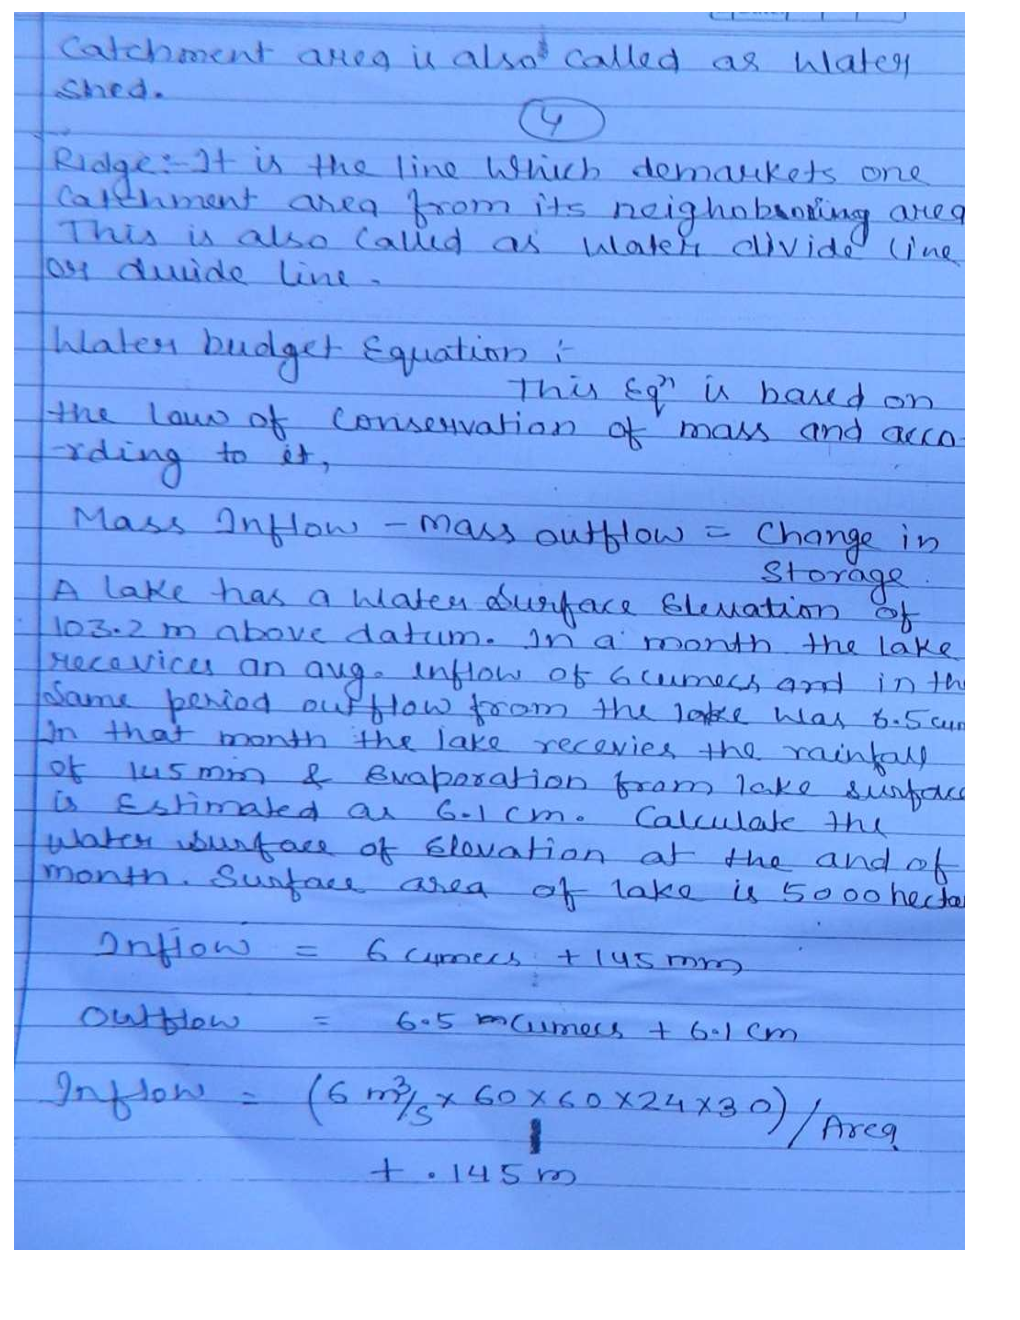 Catchment area is also called as Water
shed.
4
Ridge:- It is the line which demarkets one
Catchment area from its neighobooring area
This is also called as Water divide line
or divide line.
Water budget Equation :-
This Eqn is based on
the law of conservation of mass and acco-
-rding to it,
Mass Inflow - mass outflow = Change in
Storage.
A lake has a water surface Elevation of
103.2 m above datum. In a month the lake
recevices an avg. inflow of 6 cumecs and in th
Same period outflow from the lake was 6.5 cum
In that month the lake recevies the rainfall
of 145 mm & Evaporation from lake surface
is Estimated as 6.1 cm. Calculate the
water surface of Elevation at the and of
month. Surface area of lake is 5000 hecta
Inflow = 6 cumecs + 145 mm
Outflow = 6.5 cumecs + 6.1 cm
Inflow = (6 m³/s x 60 x 60 x 24 x 30) / Area
+ .145 m